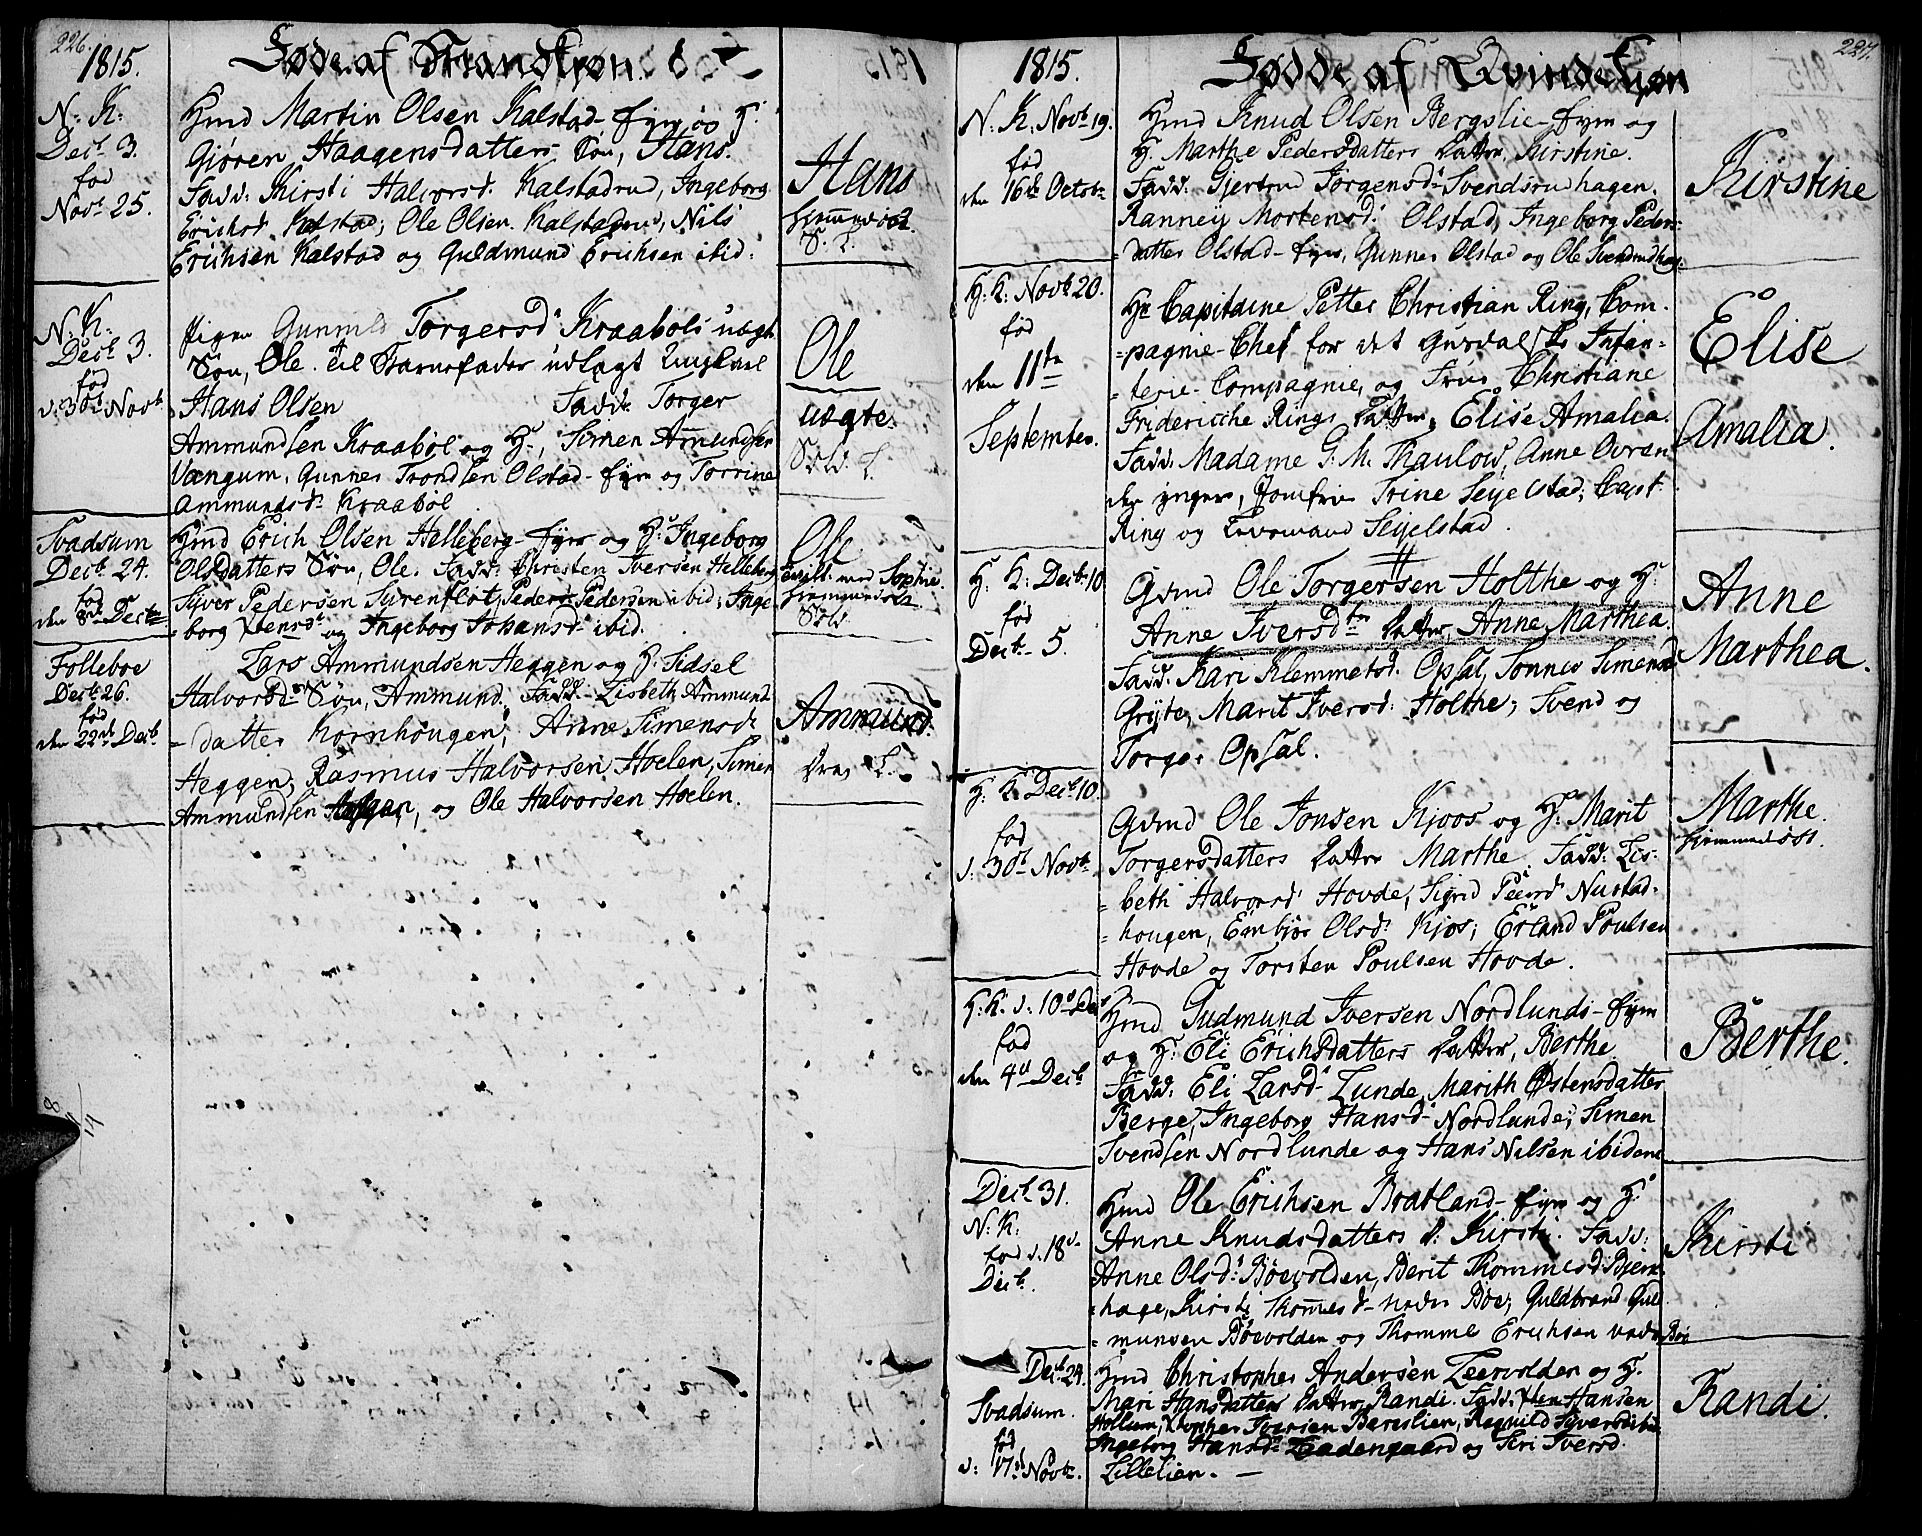 226.
1815.
Føde af Mandkjøn.
N: K:
Decbr 3.
fød
Novbr 25.
Hmd Martin Olsen Kalstad-Eyer og H:
Giøren Haagensdatters Søn, Hans.
Fadd: Kirsti Halvorsd. Kalstadrud, Ingeborg
Erichsd. Kalstad; Ole Olsen Kalstadrud, Nils
Erichsen Kalstad og Guldmund Erichsen ibid:
Hans
hjemmedøbt
N: K:
Decbr 3.
fød
d: 30d Novbr
Pigen Gunnild Torgersd: Kraabøls uægte
Søn, Ole. til Barnefader udlagt Ungkarl
Hans Olsen Fadd: Torger
Ammundsen Kraabøl og H:, Simen Amundsen
Vangum, Gunner Trondsen Olstad-Eyer og Torrine
Ammundsd: Kraabøl
Ole
uægte.
Svadsum
Decbr 24.
fød
den 8de Decbr
Hmd Erich Olsen Helleberg-Eyer og H: Ingeborg
Olsdatters Søn, Ole. Fadd: Christen Iversen Helleberg
Syver Pedersen Syrenflot, Peder Pedersen ibid: Inge
-borg og Ingeborg Johansd: ibid.
Ole
hjemmedøbt
Folleboe
Decbr 26.
fød
den 22de Decbr
Lars Ammundsen Heggen og H: Sidsel
Halvorsd: Søn, Ammund. Fadd: Lisbeth Ammund
-datter Kornhougen, Anne Simensd:
Heggen; Rasmus Halvorsen Hoelen, Simen
Ammundsen Heggen, og Ole Halvorsen Hoelen.
Ammund.
227.
1815.
Fødde af Qvindekjøn
N: K: Novbr 19.
fød
den 16de Octobr
Hmd Knud Olsen Bergslie-Eyer og
H: Marthe Pedersdatters Datter, Kirstine.
Fadd: Gjertrud Jørgensd: Svendsrudhagen.
Ranney Mortensd: Olstad, Ingeborg Peders-
-datter Olstad-Eyer, Gunner Olstad og Ole Svendsrudhag:
Kirstine
H: K: Novbr 20.
fød
den 11te
September.
Hr Capitaine Petter Christian Ring, Com-
-pagnie-Chef for det Gusdalske Infan-
-terie-Compagnie, og Frue Christiane
Fridericche Rings Datter, Elise Amalia.
Fadd: Madame G. M. Thaulow, Anne Ovren
den yngere, Jomfrue Trine Seyelstad; Capt:
Ring og Seyelstad.
Elise
Amalia.
H: K: Decbr 10
fød
Decbr 5.
Gvmd Ole Torgersen Holthe og H:
Anne Iversdtrs Datter, Anne Marthea.
Fadd: Kari Klemmetsd: Opsal, Sønnev Simensd
Gryte, Marit Iversd: Holthe; Svend og
Torger Opsal.
Anne
Marthea.
H: K: Decbr 10.
fød
d: 30d Novbr
Gvmd Ole Jonsen Kjoos og H: Marit
Torgersdatters Datter Marthe. Fadd: Lis-
-beth Halvorsd: Hovde, Sigrid Peersd: Nustad-
-hougen, Embjør Olsd: Kjos; Erland Poulsen
Hovde og Torsten Poulsen Hovde.
Marthe.
hjemmedøbt.
H: K: d: 10d Dec
fød
den 4de Decbr
Hmd Gudmund Iversen Nordlunds-Eyer
og H: Eli Erichsdatters Datter, Berthe.
Fadd: Eli Larsd: Lunde, Marith Østensdatter
Berge, Ingeborg Hansd: Nordlunde; Simen
Svendsen Nordlunde og Hans Nilsen ibidem
Berthe.
Decbr 31.
N: K:
fød d. 18d
Decbr.
Hmd Ole Erichsen Bratland-Eyer og H:
Anne Knudsdatters D: Kirsti. Fadd:
Anne Olsd: Bøevolden, Berit Thommesd:
-hage, Kirsti Thommesd: neder Bøe; Guldbrand Gul
-munsen Bøevolden og Thomme Erichsen nedre Bøe
Kirsti
Decbr 24.
Svadsum.
fød
d: 17de Novbr.
Hmd Christopher Andersen Leervolden og H:
Mari Hansdatters Datter, Randi. Fadd: Hansen
Hollum, Iversen Bareslien, Ragnild Syversd: ibid.
Ingeborg Hansd: Ladengaard og Siri Iversd:
Lillelien.
Randi.